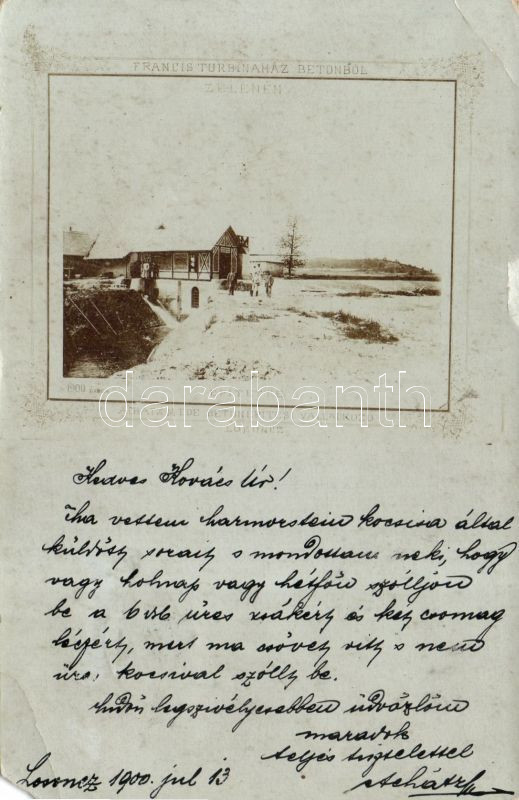 FRANCIS TURBINAHÁZ BETONBÓL
ZELENEN
1900
darabanth.com
LOSONCZ
Kedves Kovács Úr!
ma vettem harmorstein kocsisa által
küldött sorait s mondottam neki, hogy
vagy holnap vagy hétfőn szóljon
be a 6 db üres zsákért és két csomag
léczért, mert ma csövet vitt s nem
üres kocsival szólt be.
legszivélyesebben üdvözlöm
maradok
teljes tisztelettel
Losoncz 1900. jul 13